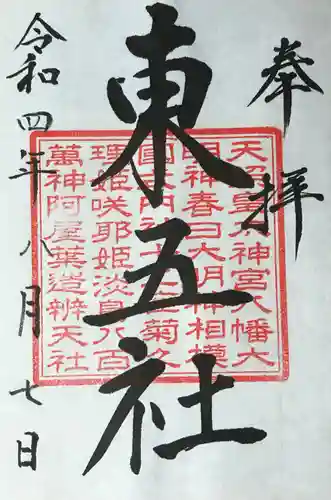 奉拝
東五社
令和四年八月七日
天照皇大神宮八幡大
明神春日大明神相模
国大内神十二社菊久
理姫咲耶姫淡島八百
萬神阿屋葉造辨天社